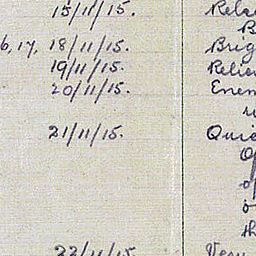 15/11/15. Rela
B
6, 17, 18/11/15. Brig
19/11/15. Relie
20/11/15. Enem
21/11/15. Quie
O
of
o
th
22/11/15. Very